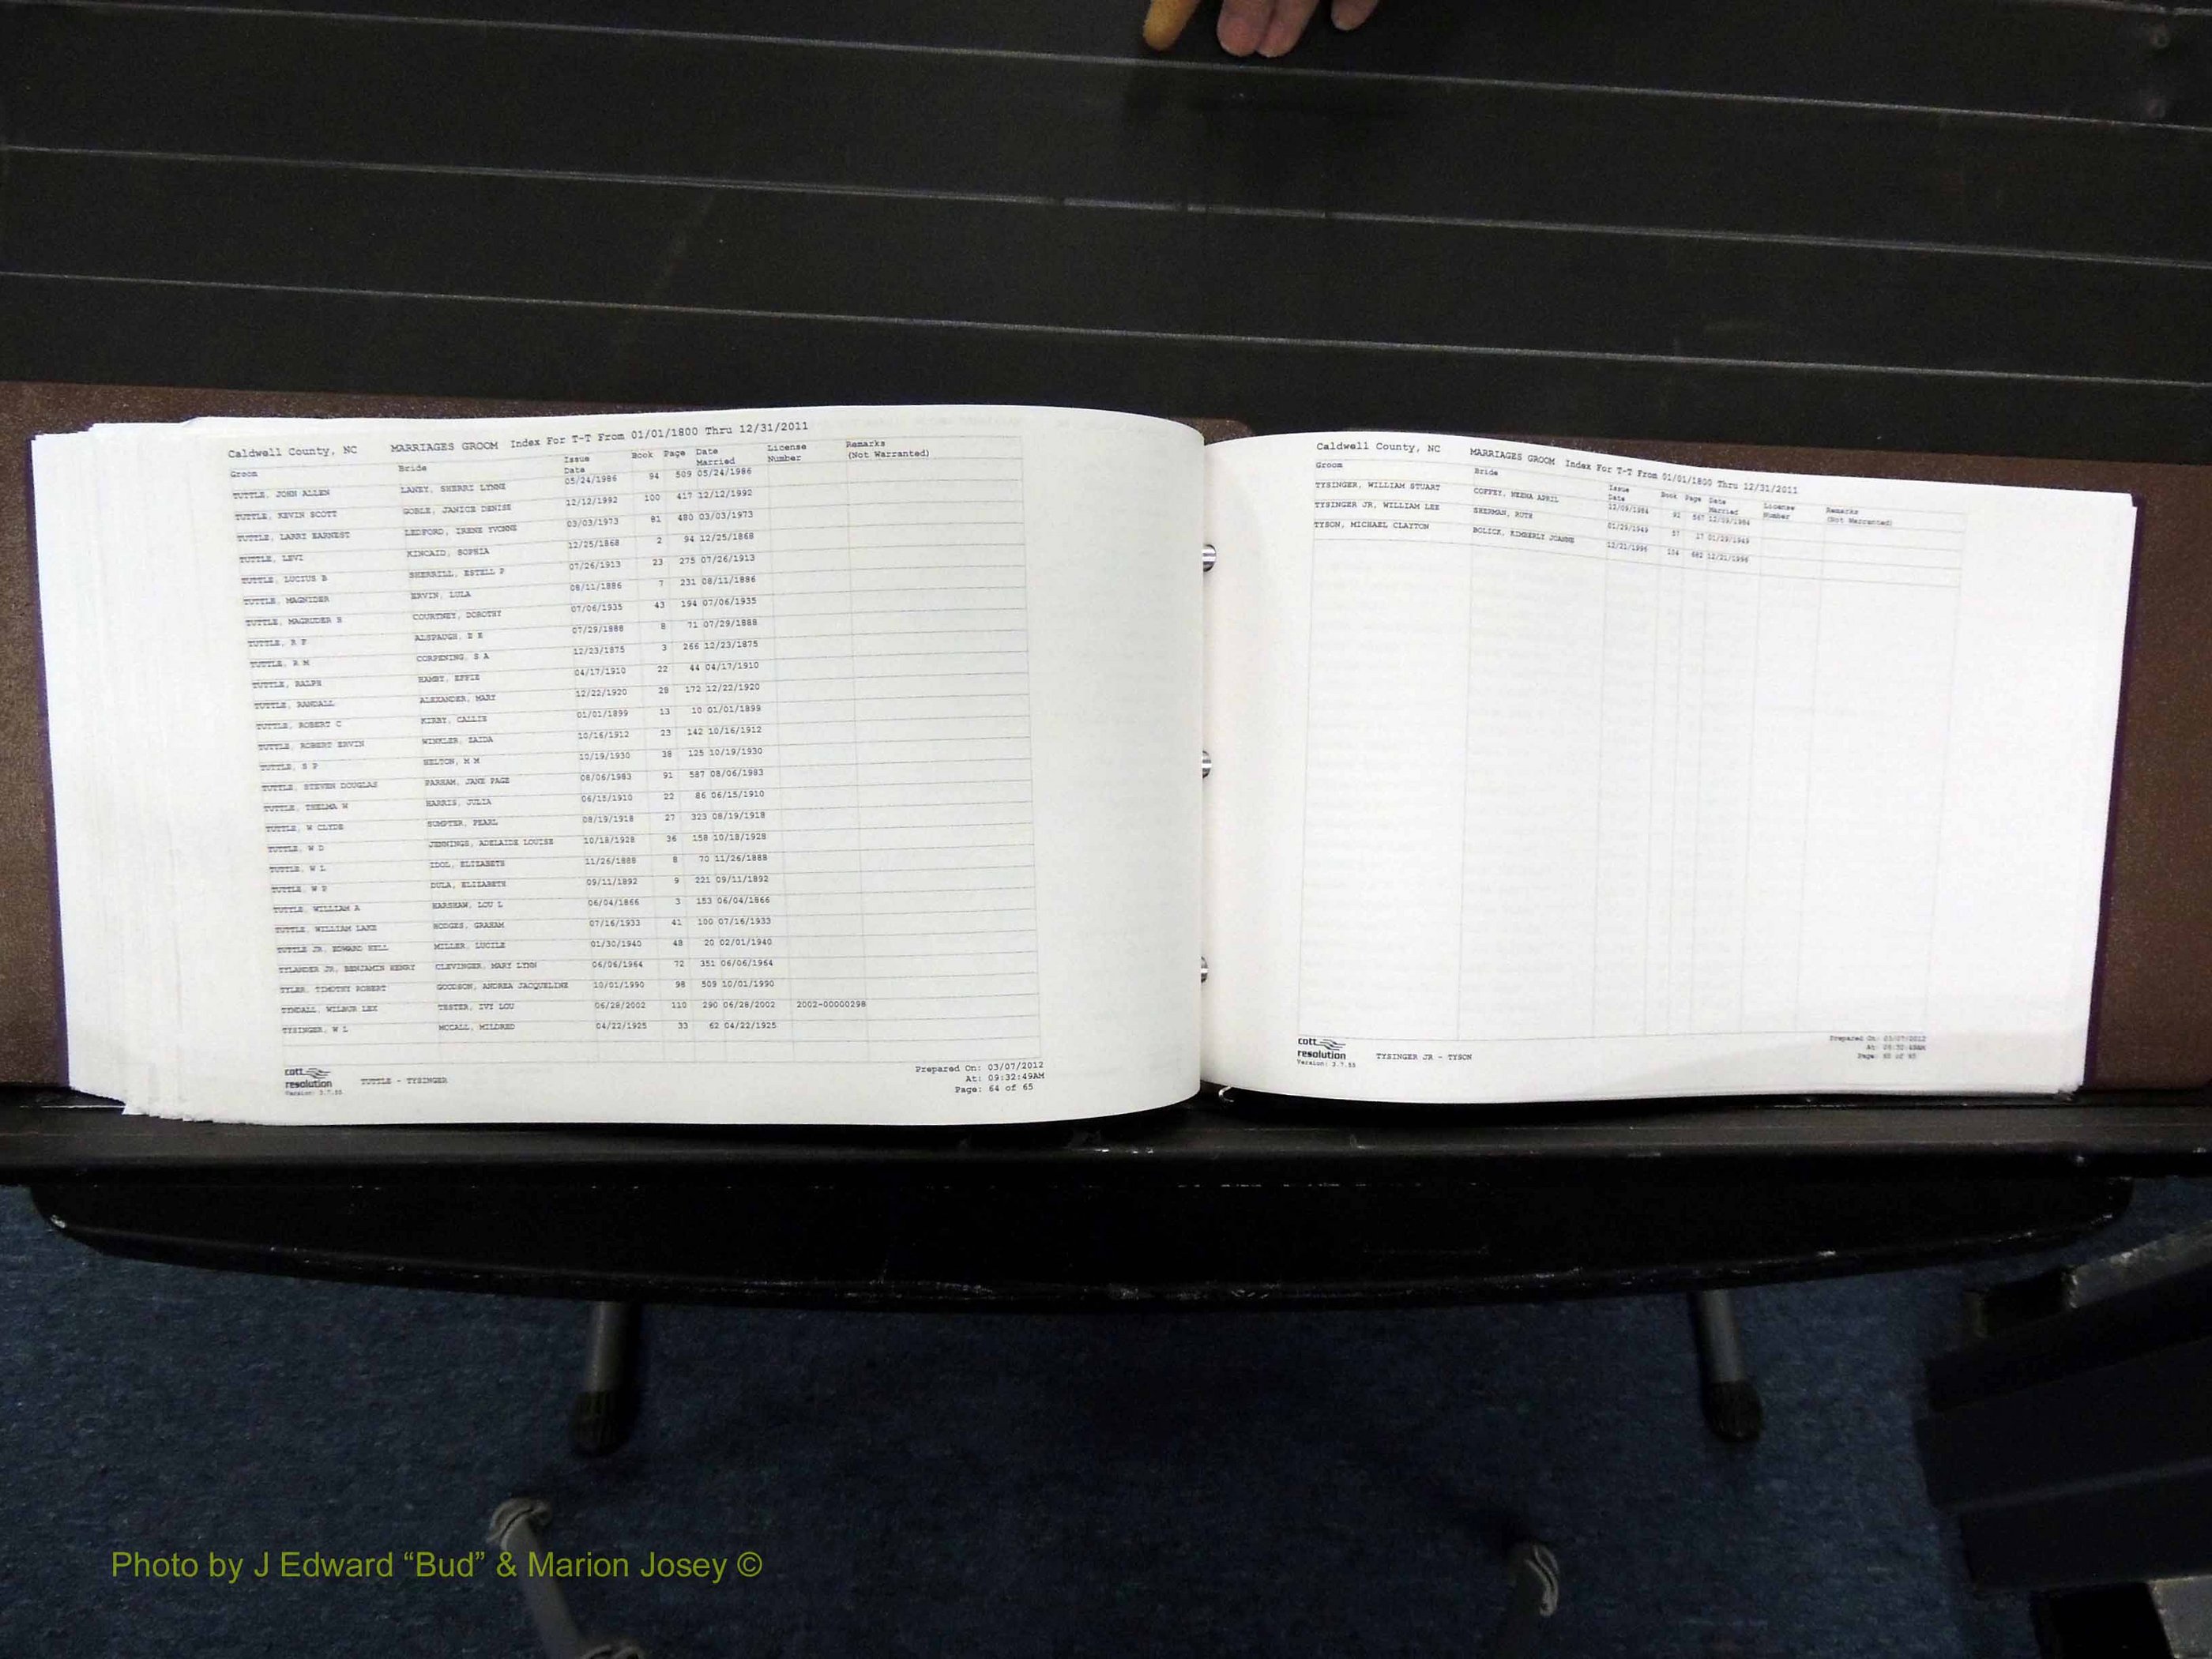 Caldwell County, NC MARRIAGES GROOM Index For T-T From 01/01/1800 Thru 12/31/2011
Groom Bride Issue Date Book Page Date Married License Number Remarks (Not Warranted)
TUTTLE, JOHN ALLEN LANEY, SHERRI LYNNE 05/24/1986 94 509 05/24/1986
TUTTLE, KEVIN SCOTT GOBLE, JANICE DENISE 12/12/1992 100 417 12/12/1992
TUTTLE, LARRY EARNEST LEDFORD, IRENE YVONNE 03/03/1973 81 480 03/03/1973
TUTTLE, LEVI KINCAID, SOPHIA 12/25/1868 2 94 12/25/1868
TUTTLE, LUCIUS B SHERRILL, ESTELL P 07/26/1913 23 275 07/26/1913
TUTTLE, MAGNIDER ERVIN, LULA 08/11/1886 7 231 08/11/1886
TUTTLE, MAGRUDER H COURTNEY, DOROTHY 07/06/1935 43 194 07/06/1935
TUTTLE, R F ALSPAUGH, E E 07/29/1888 8 71 07/29/1888
TUTTLE, R M CORPENING, S A 12/23/1875 3 266 12/23/1875
TUTTLE, RALPH HAMBY, EFFIE 04/17/1910 22 44 04/17/1910
TUTTLE, RANDALL ALEXANDER, MARY 12/22/1920 28 172 12/22/1920
TUTTLE, ROBERT C KIRBY, CALLIE 01/01/1899 13 10 01/01/1899
TUTTLE, ROBERT ERVIN WINKLER, ZAIDA 10/16/1912 23 142 10/16/1912
TUTTLE, S P HELTON, M M 10/19/1930 38 125 10/19/1930
TUTTLE, STEVEN DOUGLAS PARHAM, JANE PAGE 08/06/1983 91 587 08/06/1983
TUTTLE, THELMA W HARRIS, JULIA 06/15/1910 22 86 06/15/1910
TUTTLE, W CLYDE SUMPTER, PEARL 08/19/1918 27 323 08/19/1918
TUTTLE, W D JENNINGS, ADELAIDE LOUISE 10/18/1928 36 158 10/18/1928
TUTTLE, W L IDOL, ELIZABETH 11/26/1888 8 70 11/26/1888
TUTTLE, W P DULA, ELIZABETH 09/11/1892 9 221 09/11/1892
TUTTLE, WILLIAM A HARSHAW, LOU L 06/04/1866 3 153 06/04/1866
TUTTLE, WILLIAM LAKE HODGES, GRAHAM 07/16/1933 41 100 07/16/1933
TUTTLE JR, EDWARD HILL MILLER, LUCILE 01/30/1940 48 20 02/01/1940
TYLANDER JR, BENJAMIN HENRY CLEVINGER, MARY LYNN 06/06/1964 72 351 06/06/1964
TYLER, TIMOTHY ROBERT GOODSON, ANDREA JACQUELINE 10/01/1990 98 509 10/01/1990
TYNDALL, WILBUR LEX TESTER, IVY LOU 06/28/2002 110 290 06/28/2002 2002-00000298
TYSINGER, W L MCCALL, MILDRED 04/22/1925 33 62 04/22/1925
cott
resolution
Version: 3.7.55
TUTTLE - TYSINGER
Prepared On: 03/07/2012
At: 09:32:49AM
Page: 64 of 65
Caldwell County, NC MARRIAGES GROOM Index For T-T From 01/01/1800 Thru 12/31/2011
Groom Bride Issue Date Book Page Date Married License Number Remarks (Not Warranted)
TYSINGER, WILLIAM STUART COFFEY, 12/09/1984 567
TYSINGER JR, WILLIAM LEE SHERMAN, RUTH 01/29/1949 57 17 01/29/1949
TYSON, MICHAEL CLAYTON BOLICK, KIMBERLY JOANNE 12/21/1996 104 682 12/21/1996
cott
resolution
Version: 3.7.55
TYSINGER JR - TYSON
Prepared On: 03/07/2012
At: 09:32:49AM
Page: 65 of 65
Photo by J Edward “Bud” & Marion Josey ©